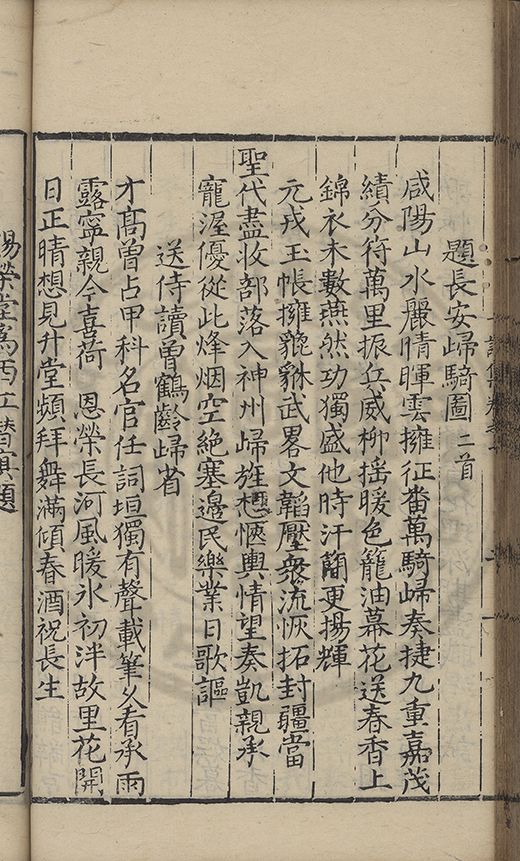 題長安歸騎圖二首
咸陽山水麗晴暉雲擁征畨萬騎歸奏捷九重嘉茂
績分符萬里振兵威柳摇暖色籠油幕花送春香上
錦衣未數燕然功獨盛他時汗簡更揚輝
元戎玉帳擁貔貅武畧文韜壓衆流恢拓封疆當
聖代盡收部落入神州歸旌想愜輿情望奏凱親承
寵渥優從此烽烟空絶塞邊民樂業日歌謳
送侍讀曾鶴齡歸省
才髙曾占甲科名官任詞垣獨有聲載筆久看承雨
露寧親今喜荷 恩榮長河風暖氷初泮故里花開
日正晴想見升堂頻拜舞滿傾春酒祝長生